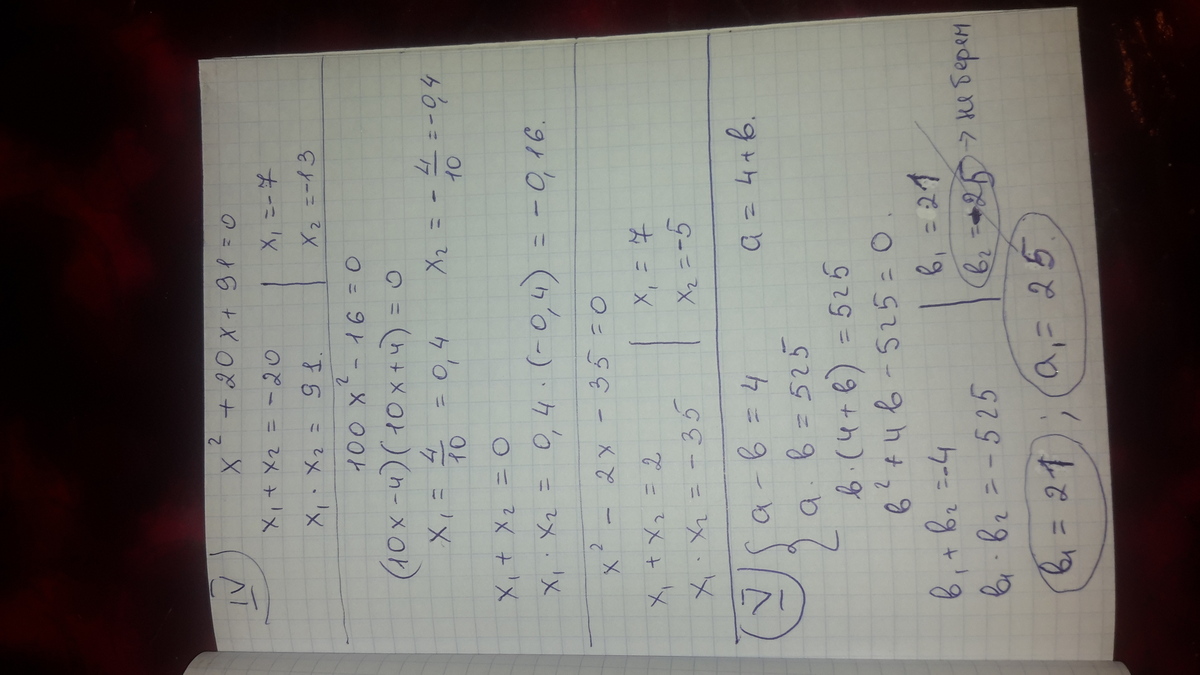 IV) x² + 20x + 91 = 0
x₁ + x₂ = -20 | x₁ = -7
x₁ · x₂ = 91. | x₂ = -13
100x² - 16 = 0
(10x - 4)(10x + 4) = 0
x₁ = 4/10 = 0,4 x₂ = -4/10 = -0,4
x₁ + x₂ = 0
x₁ · x₂ = 0,4 · (-0,4) = -0,16.
x² - 2x - 35 = 0
x₁ + x₂ = 2 | x₁ = 7
x₁ · x₂ = -35 | x₂ = -5
V) { a - в = 4 a = 4 + в.
a · в = 525
в · (4 + в) = 525
в² + 4в - 525 = 0.
в₁ + в₂ = -4 | в₁ = 21
в₁ · в₂ = -525 | в₂ = -25 → не берем
в₁ = 21 ; a₁ = 25.